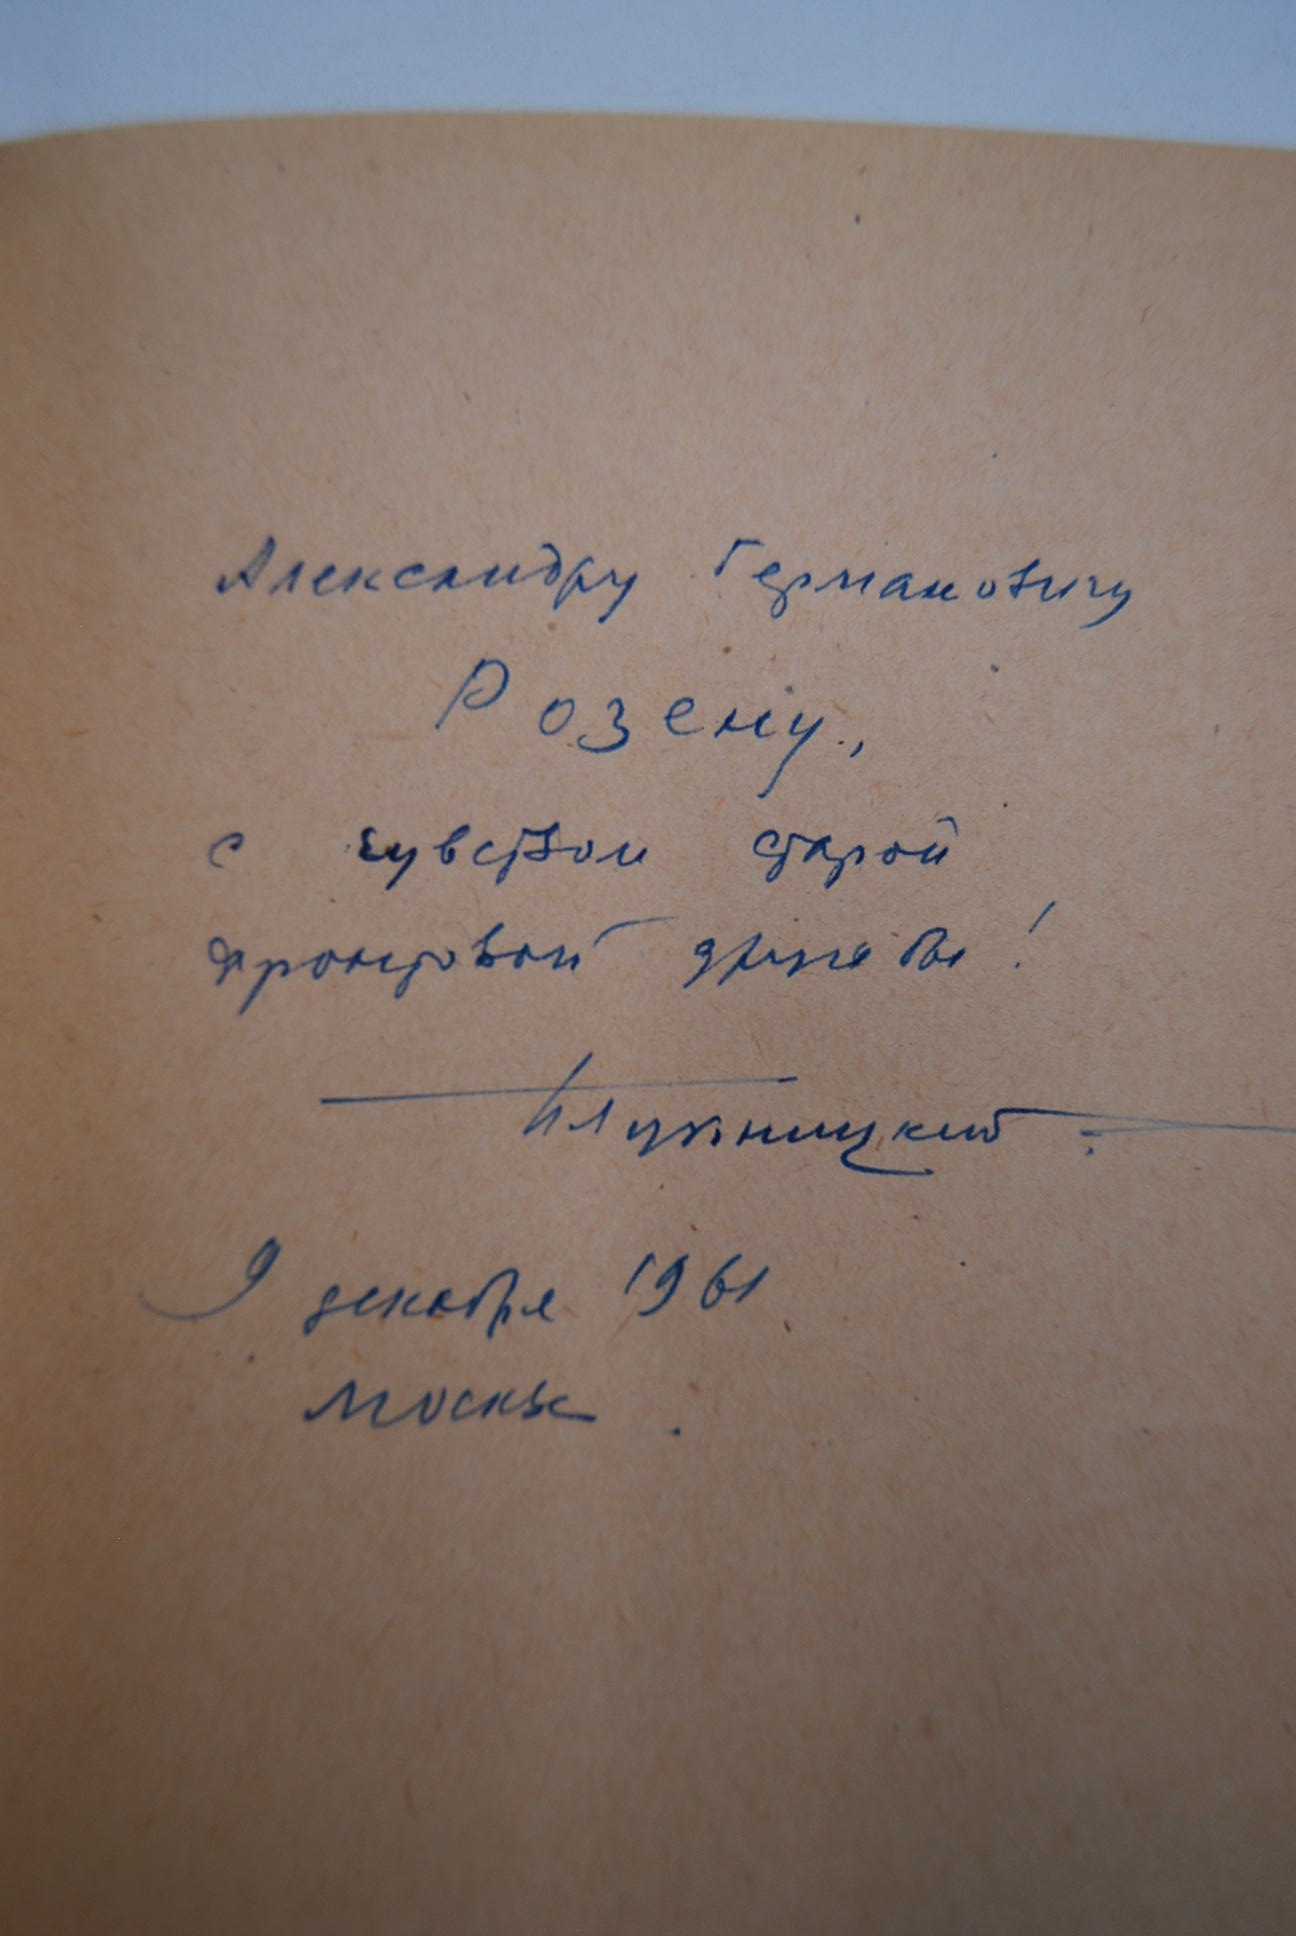 Александру Германовичу
Розену,
с чувством старой
фронтовой дружбы!
П Лукницкий.
9 декабря 1961
Москва.